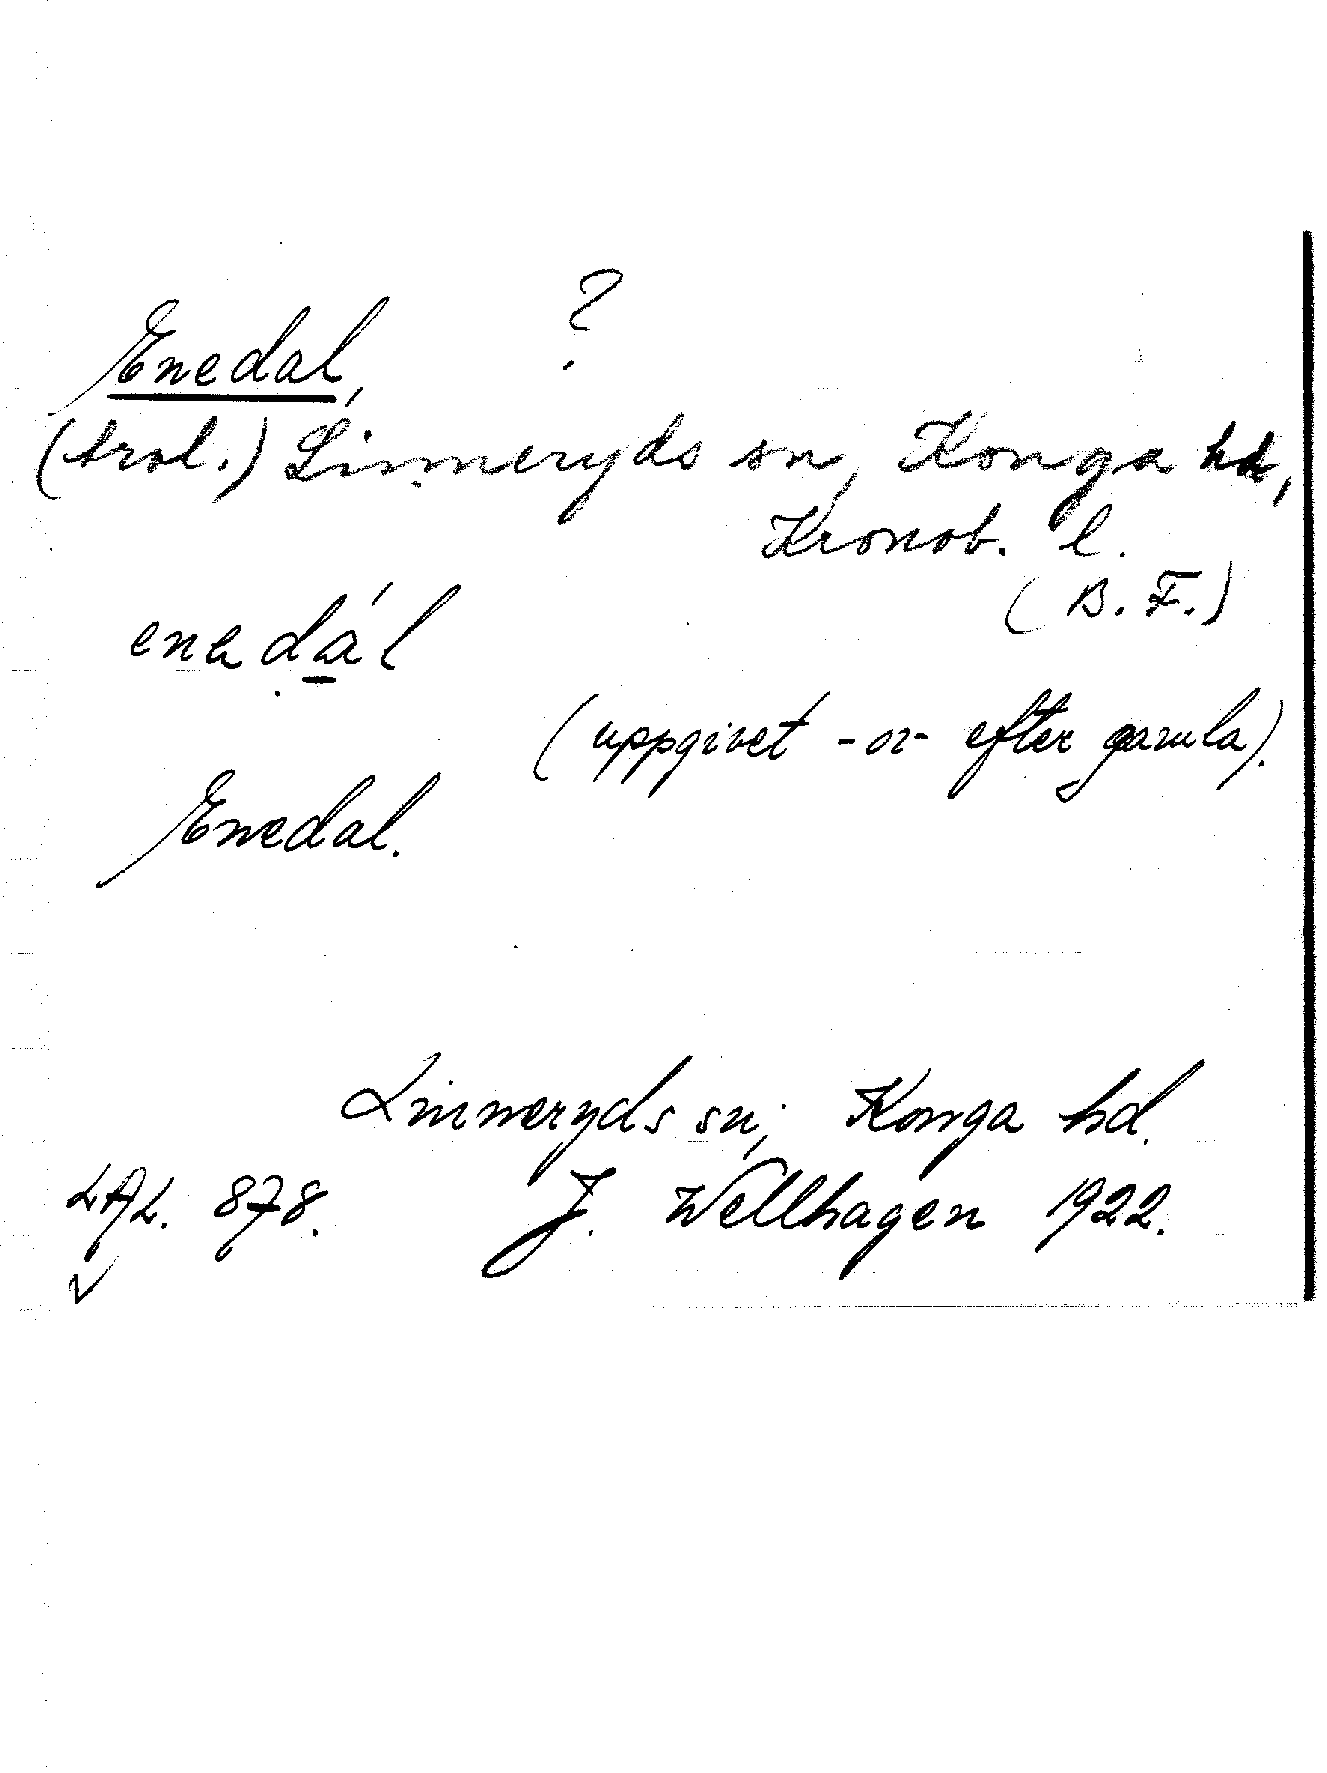 Enedal, ?
(trol.) Linneryds sn, Konga hd,
Kronob. l.
(B. F.)
enadál
(uppgivet -or- efter gamla).
Enedal.
Linneryds sn, Konga hd.
LAL. 878. J. Wellhagen 1922.